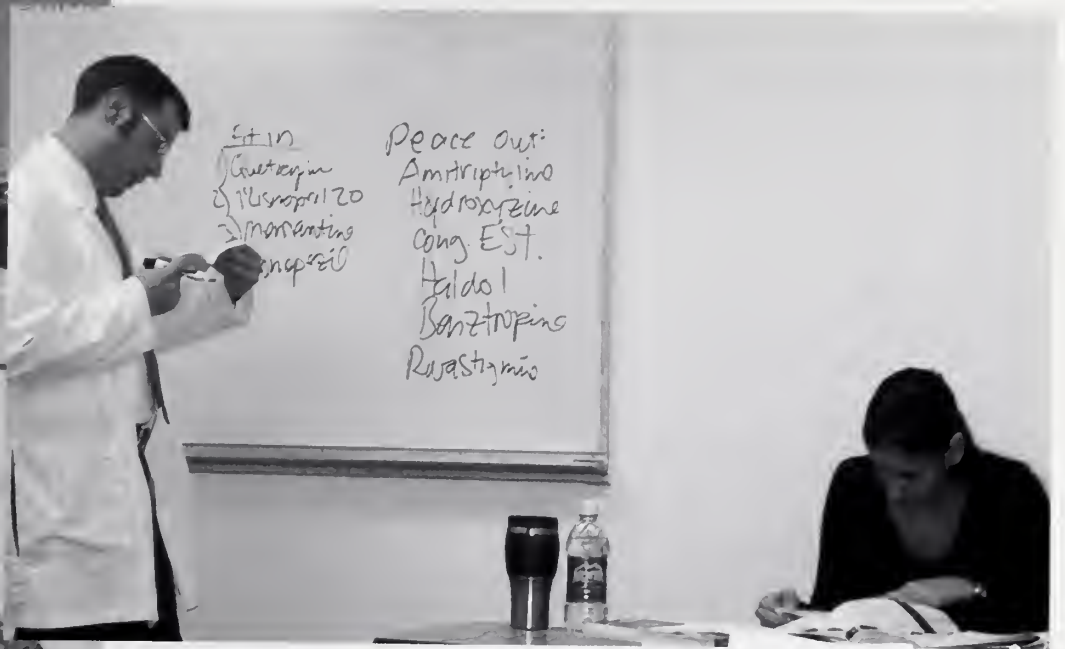 Quetiapin
2) lisinopril 20
3) memantine
Peace out:
Amitriptyline
Hydroxyzine
cong. EST.
Haldol
Benztropine
Rivastigmin